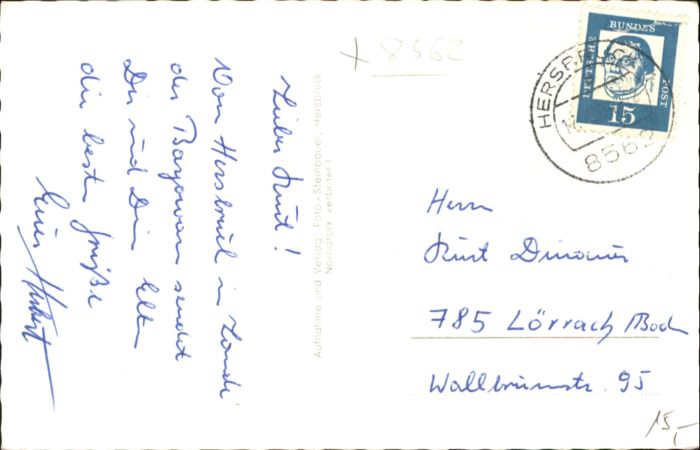 Lieber Kurt!
Von Hersbruck in Lande
der Bajowaren sendet
Dir und Dein Eltern
die besten Grüße
Euer Herbert
Aufnahme und Verlag: Foto-Steinbauer, Hersbruck
Nachdruck verboten!
8562
DEUTSCHE
BUNDES
POST
15
HERSBRUCK
8562
Herrn
Kurt
785 Lörrach/Bad
Wallbrunnstr. 95
15,-